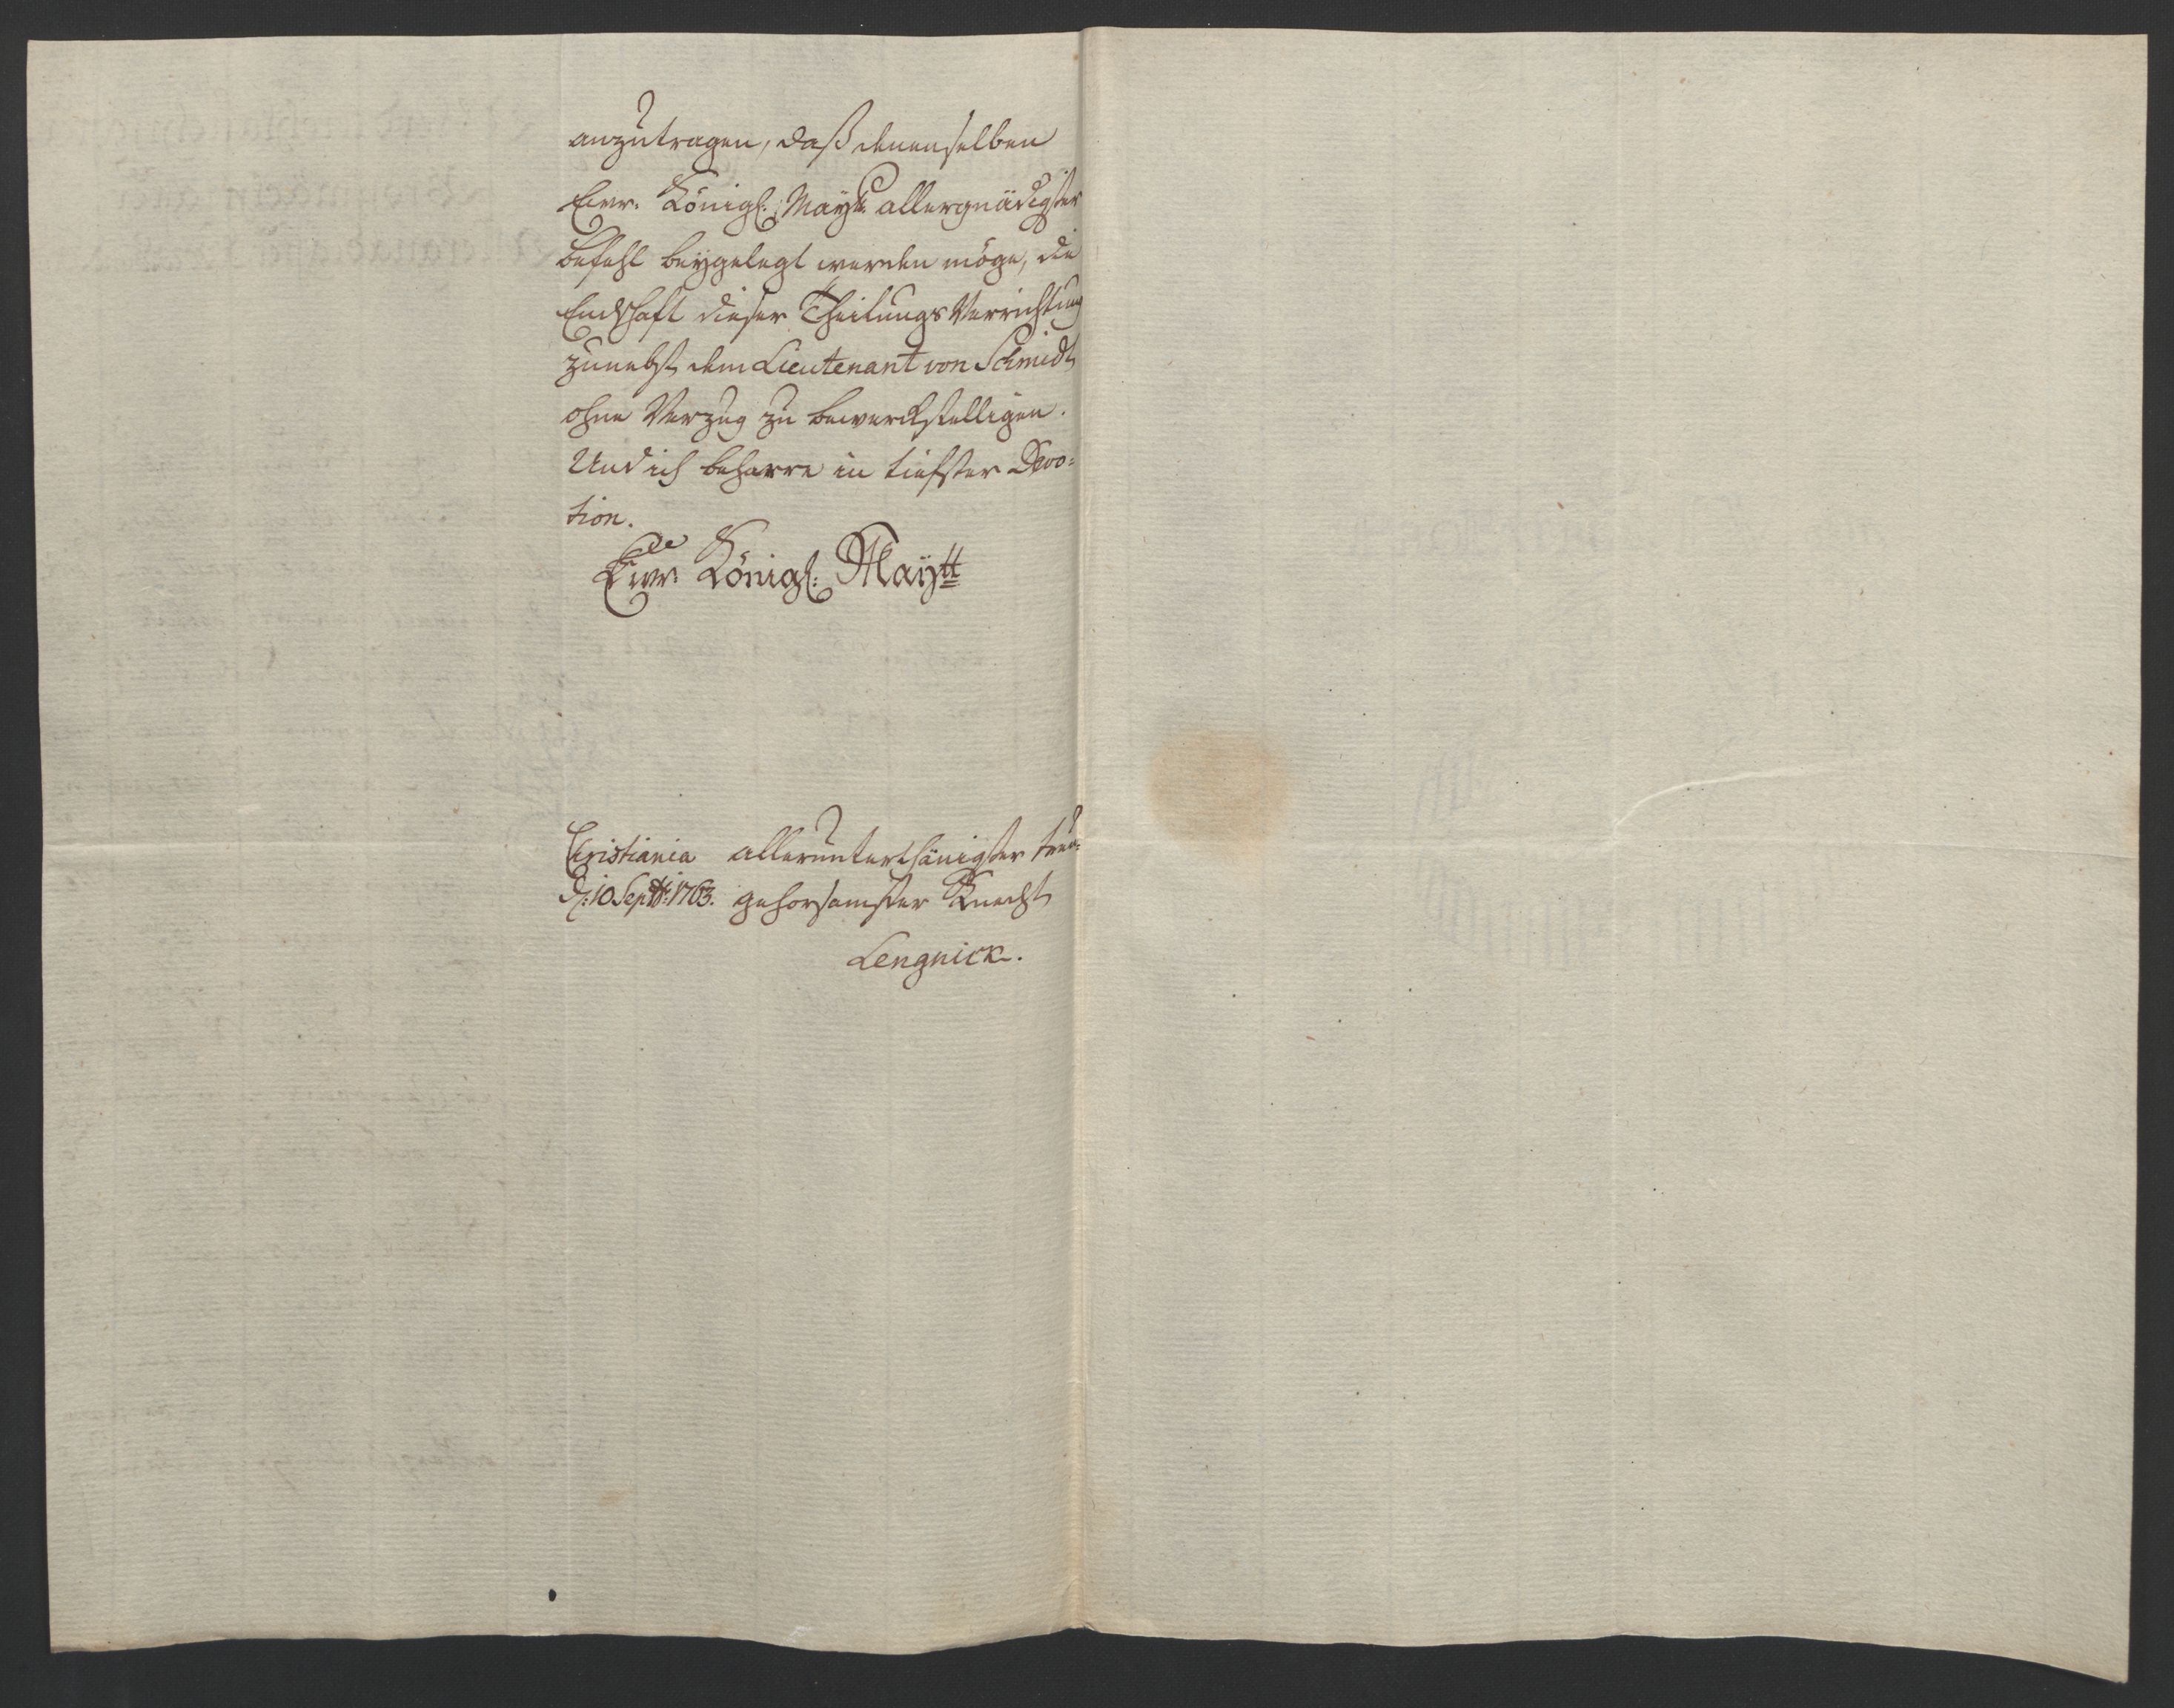 anzutragen, daß denenselben
Ewr. Königl. Maytt. allergnädigster
Befehl beygelegt werden möge, die
Endschaft dieser Theilungs Verrichtung
zunebst dem Lieutenant von Schmidt
ohne Verzug zu bewerckstelligen.
Und ich beharre in tiefster Devo=
tion.
Ewr. Königl. Maytt
Christiania allerunterthänigster treu=
d: 10 Septbr: 1763. gehorsamster Knecht
Lengnick.